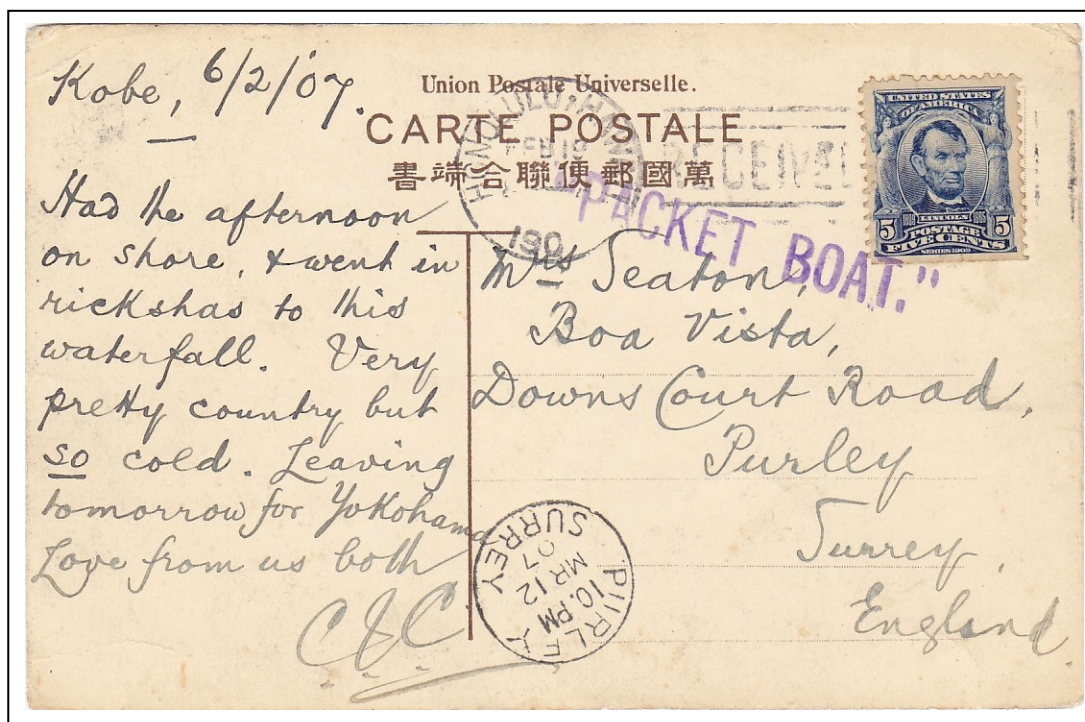 Kobe, 6/2/07.
Union Postale Universelle.
CARTE POSTALE
書端合聯便郵國萬
HONOLULU, HAWAII
FEB 18
190
RECEIVED
"PACKET BOAT."
UNITED STATES
OF AMERICA
1809 LINCOLN 1865
5 POSTAGE 5
FIVE CENTS
SERIES 1902
Had the afternoon
on shore, & went in
rickshas to this
waterfall. Very
pretty country but
so cold. Leaving
tomorrow for Yokohama
Love from us both
C & C
Mrs Seaton,
Boa Vista,
Downs Court Road,
Purley
Surrey,
England
PURLEY
10.PM
MR 12
07
SURREY